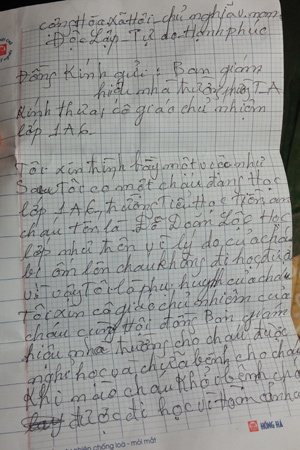 cộng Hòa Xã Hội chủ nghĩa v. nam
Độc Lập - Tự do - Hạnh phúc
Đồng Kính gửi: Ban giám
hiệu nhà trường
Kính thưa cô giáo chủ nhiệm
lớp 1A6.
Tôi xin trình bày một việc như
Sau Tôi có một cháu đang Học
lớp 1A6, trường Tiểu Học Tiên an
cháu Tên là Đỗ Doãn Lộc Học
lớp như trên vì lý do của cháu
bị ốm lên cháu không đi học được
vì vậy Tôi là phụ huynh của cháu
Tôi xin cô giáo chủ nhiệm của
cháu cùng Hội đồng Ban giám
hiệu nhà trường cho cháu được
nghỉ học và chữa bệnh cho cháu
Khi nào cháu Khỏi bệnh cho
được đi học vì
HỒNG HÀ
viên chống loá - mỏi mắt